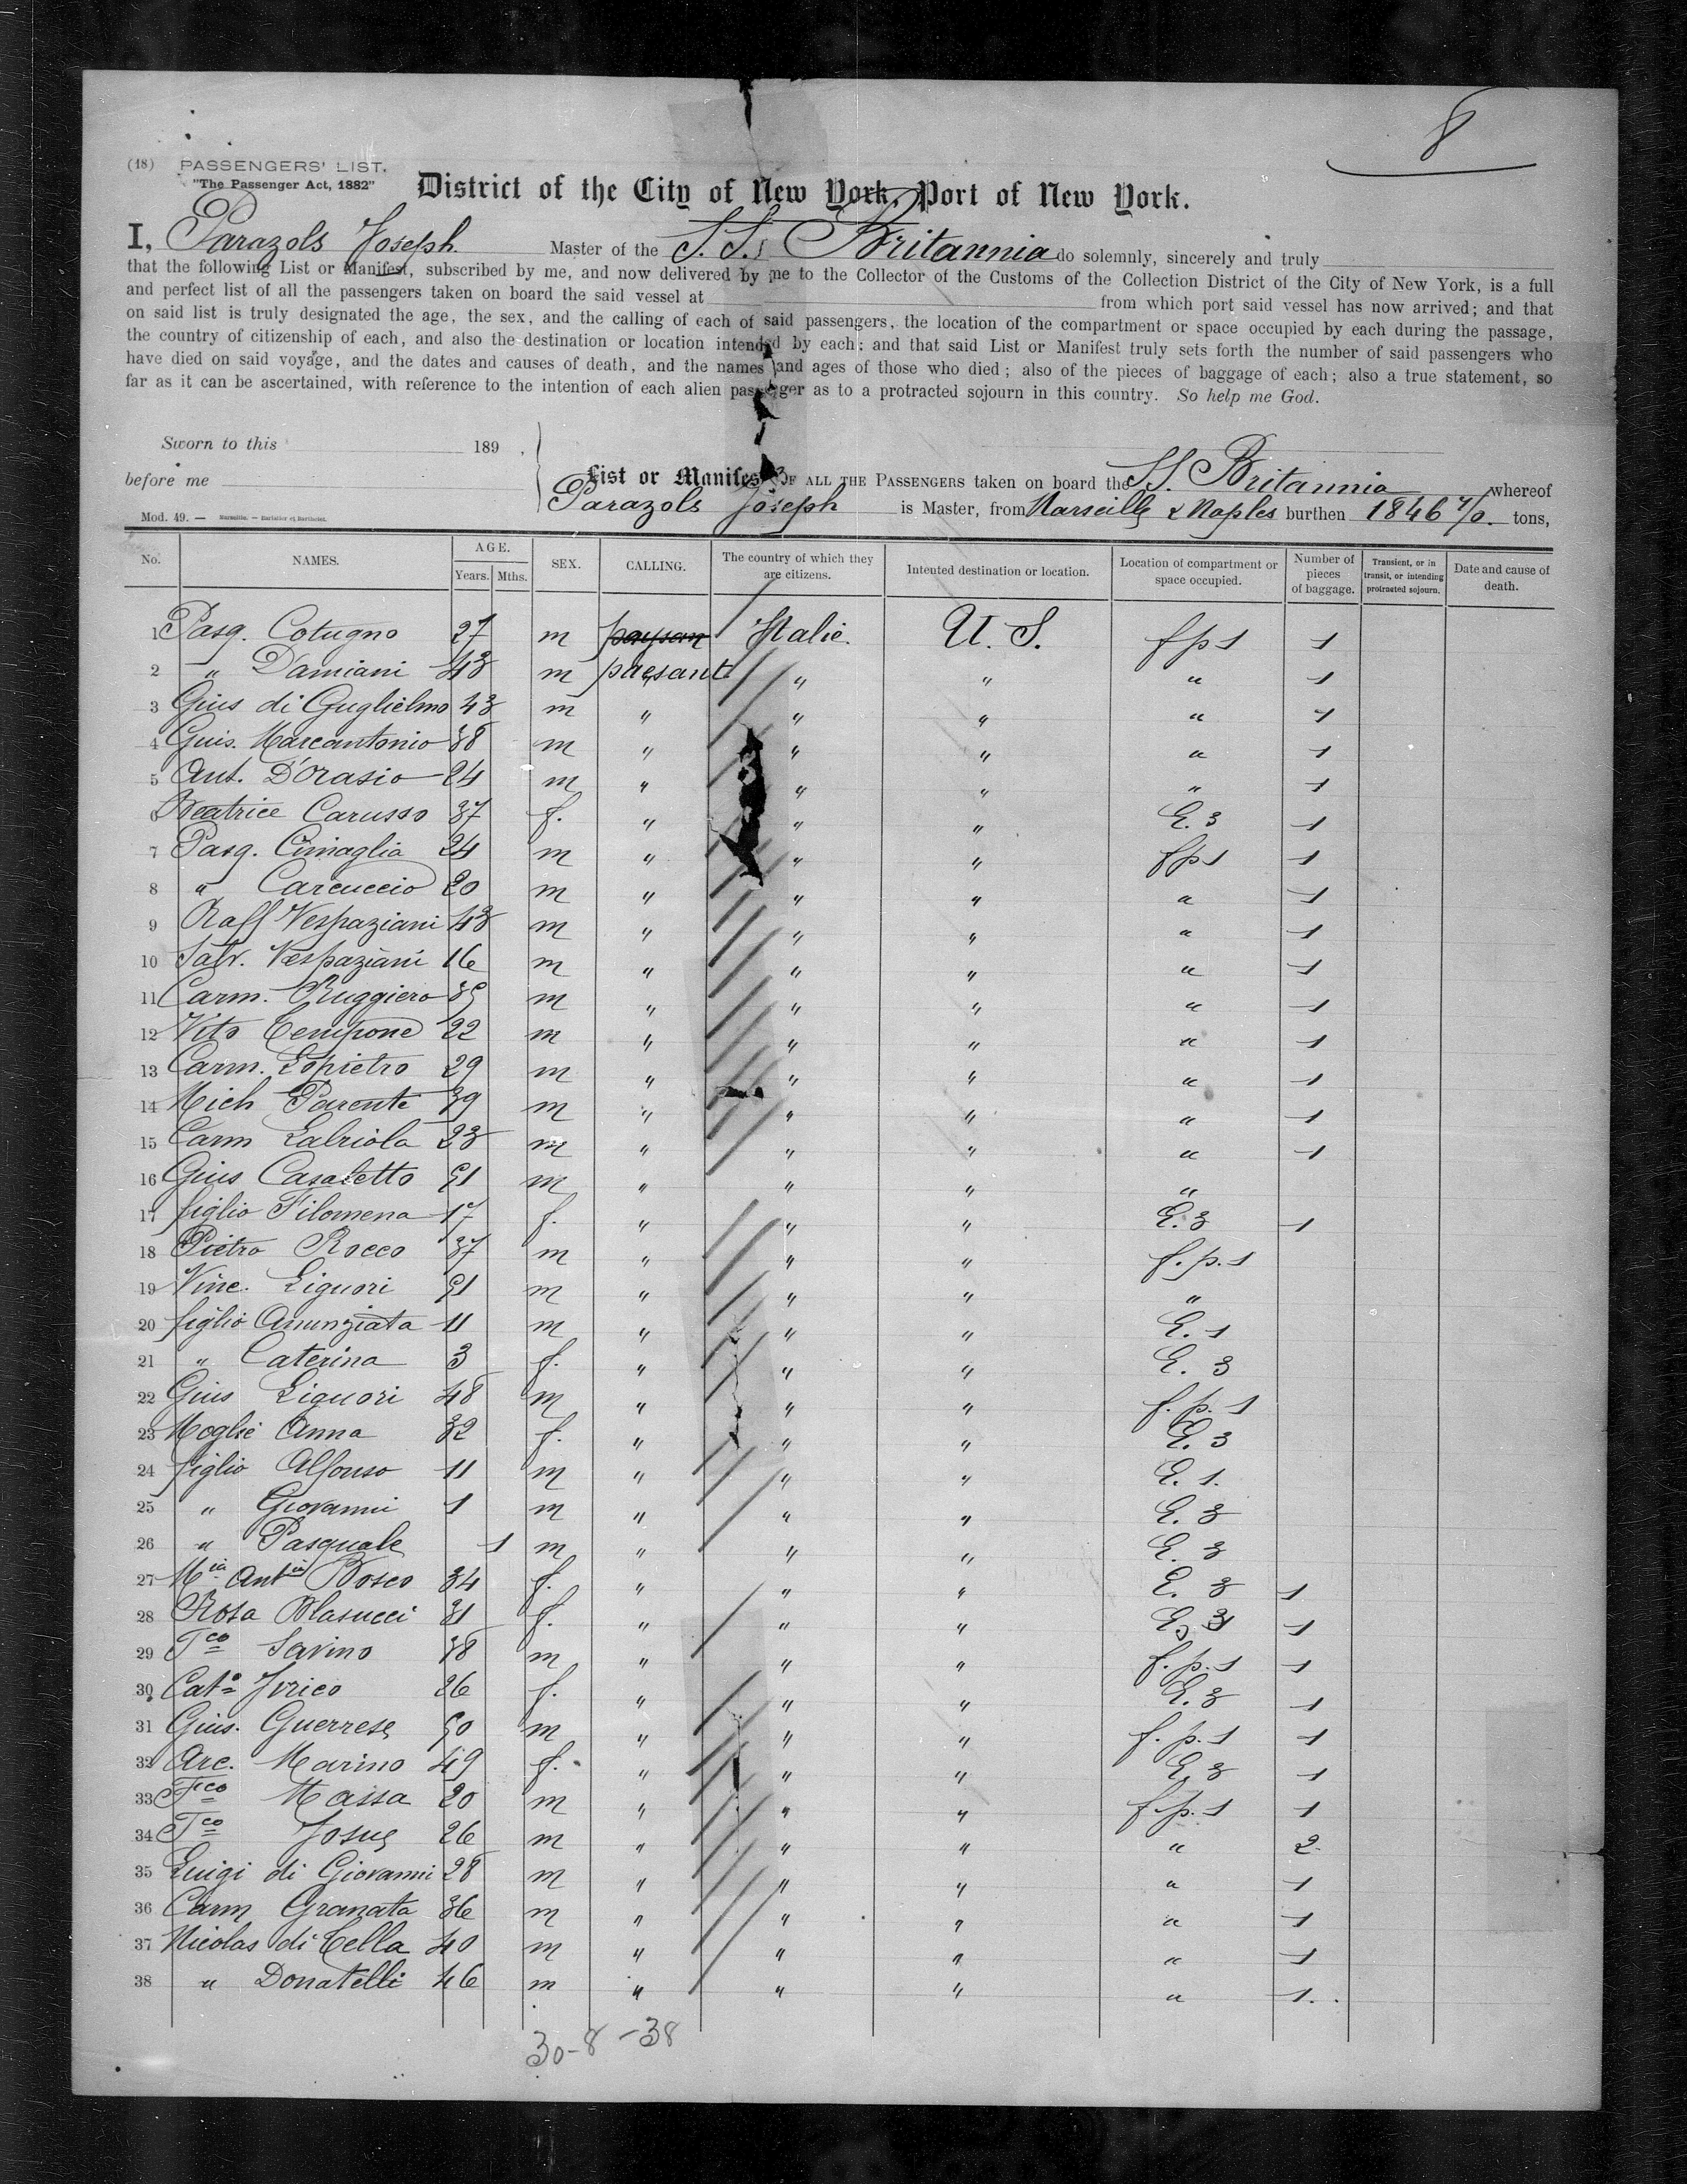 8
(18) PASSENGERS' LIST.
"The Passenger Act, 1882"
District of the City of New York, Port of New York.
I, Parazols Joseph Master of the S.S. Britannia do solemnly, sincerely and truly
that the following List or Manifest, subscribed by me, and now delivered by me to the Collector of the Customs of the Collection District of the City of New York, is a full
and perfect list of all the passengers taken on board the said vessel at from which port said vessel has now arrived; and that
on said list is truly designated the age, the sex, and the calling of each of said passengers, the location of the compartment or space occupied by each during the passage,
the country of citizenship of each, and also the destination or location intended by each: and that said List or Manifest truly sets forth the number of said passengers who
have died on said voyage, and the dates and causes of death, and the names and ages of those who died; also of the pieces of baggage of each; also a true statement, so
far as it can be ascertained, with reference to the intention of each alien passenger as to a protracted sojourn in this country. So help me God.
Sworn to this 189 ,
before me
List or Manifest OF ALL THE PASSENGERS taken on board the SS. Britannia whereof
Parazols Joseph is Master, from Marseille & Naples burthen 1846 tons,
Mod. 49. — Marseille. — Barlatier et Barthelet.
No. NAMES. AGE. Years. Mths. SEX. CALLING. The country of which they are citizens. Intented destination or location. Location of compartment or space occupied. Number of pieces of baggage. Transient, or in transit, or intending protracted sojourn. Date and cause of death.
1 Pasq. Cotugno 27 m paysan Italie. U. S. fps 1
2 " Damiani 43 m paesant " " " 1
3 Gius di Guglielmo 43 m " " " " 1
4 Guis. Marcantonio 38 m " " " " 1
5 Ant. D'Orasio 24 m " " " " 1
6 Beatrice Carusso 37 f. " " " E. 3 1
7 Pasq. Cimaglia 24 m " " " fps 1
8 " Carcuccio 20 m " " " " 1
9 Raff Vespaziani 43 m " " " " 1
10 Salv. Vespaziani 16 m " " " " 1
11 Carm. Ruggiero 35 m " " " " 1
12 Vito Cempone 22 m " " " " 1
13 Carm. Lopietro 29 m " " " " 1
14 Mich Parente 39 m " " " " 1
15 Carm Labriola 23 m " " " " 1
16 Gius Casaletto 51 m " " " "
17 figlio Filomena 17 f. " " " E. 3 1
18 Pietro Rocco 37 m " " " f. p. 1
19 Vinc. Liguori 51 m " " " "
20 figlio Anunziata 11 m " " " E. 1
21 " Caterina 3 f. " " " E. 3
22 Gius Liguori 48 m " " " f. p. 1
23 Moglie Anna 32 f. " " " E. 3
24 figlio Alfonso 11 m " " " E. 1.
25 " Giovanni 1 m " " " E. 3
26 " Pasquale 1 m " " " E. 3
27 Mia Antia Bosco 34 f. " " " E. 3 1
28 Rosa Blasucci 31 f. " " " E. 3 1
29 Fco Savino 38 m " " " f. p. 1 1
30 Cata Jirico 26 f. " " " E. 3 1
31 Gius. Guerrese 50 m " " " f. p. 1 1
32 Arc. Marino 49 f. " " " E. 3 1
33 Fco Massa 20 m " " " f. p. 1 1
34 Fco Josue 26 m " " " " 2
35 Luigi di Giovanni 28 m " " " " 1
36 Carm Granata 36 m " " " " 1
37 Nicolas di Cella 40 m " " " " 1
38 " Donatelli 46 m " " " " 1.
30-8 -38